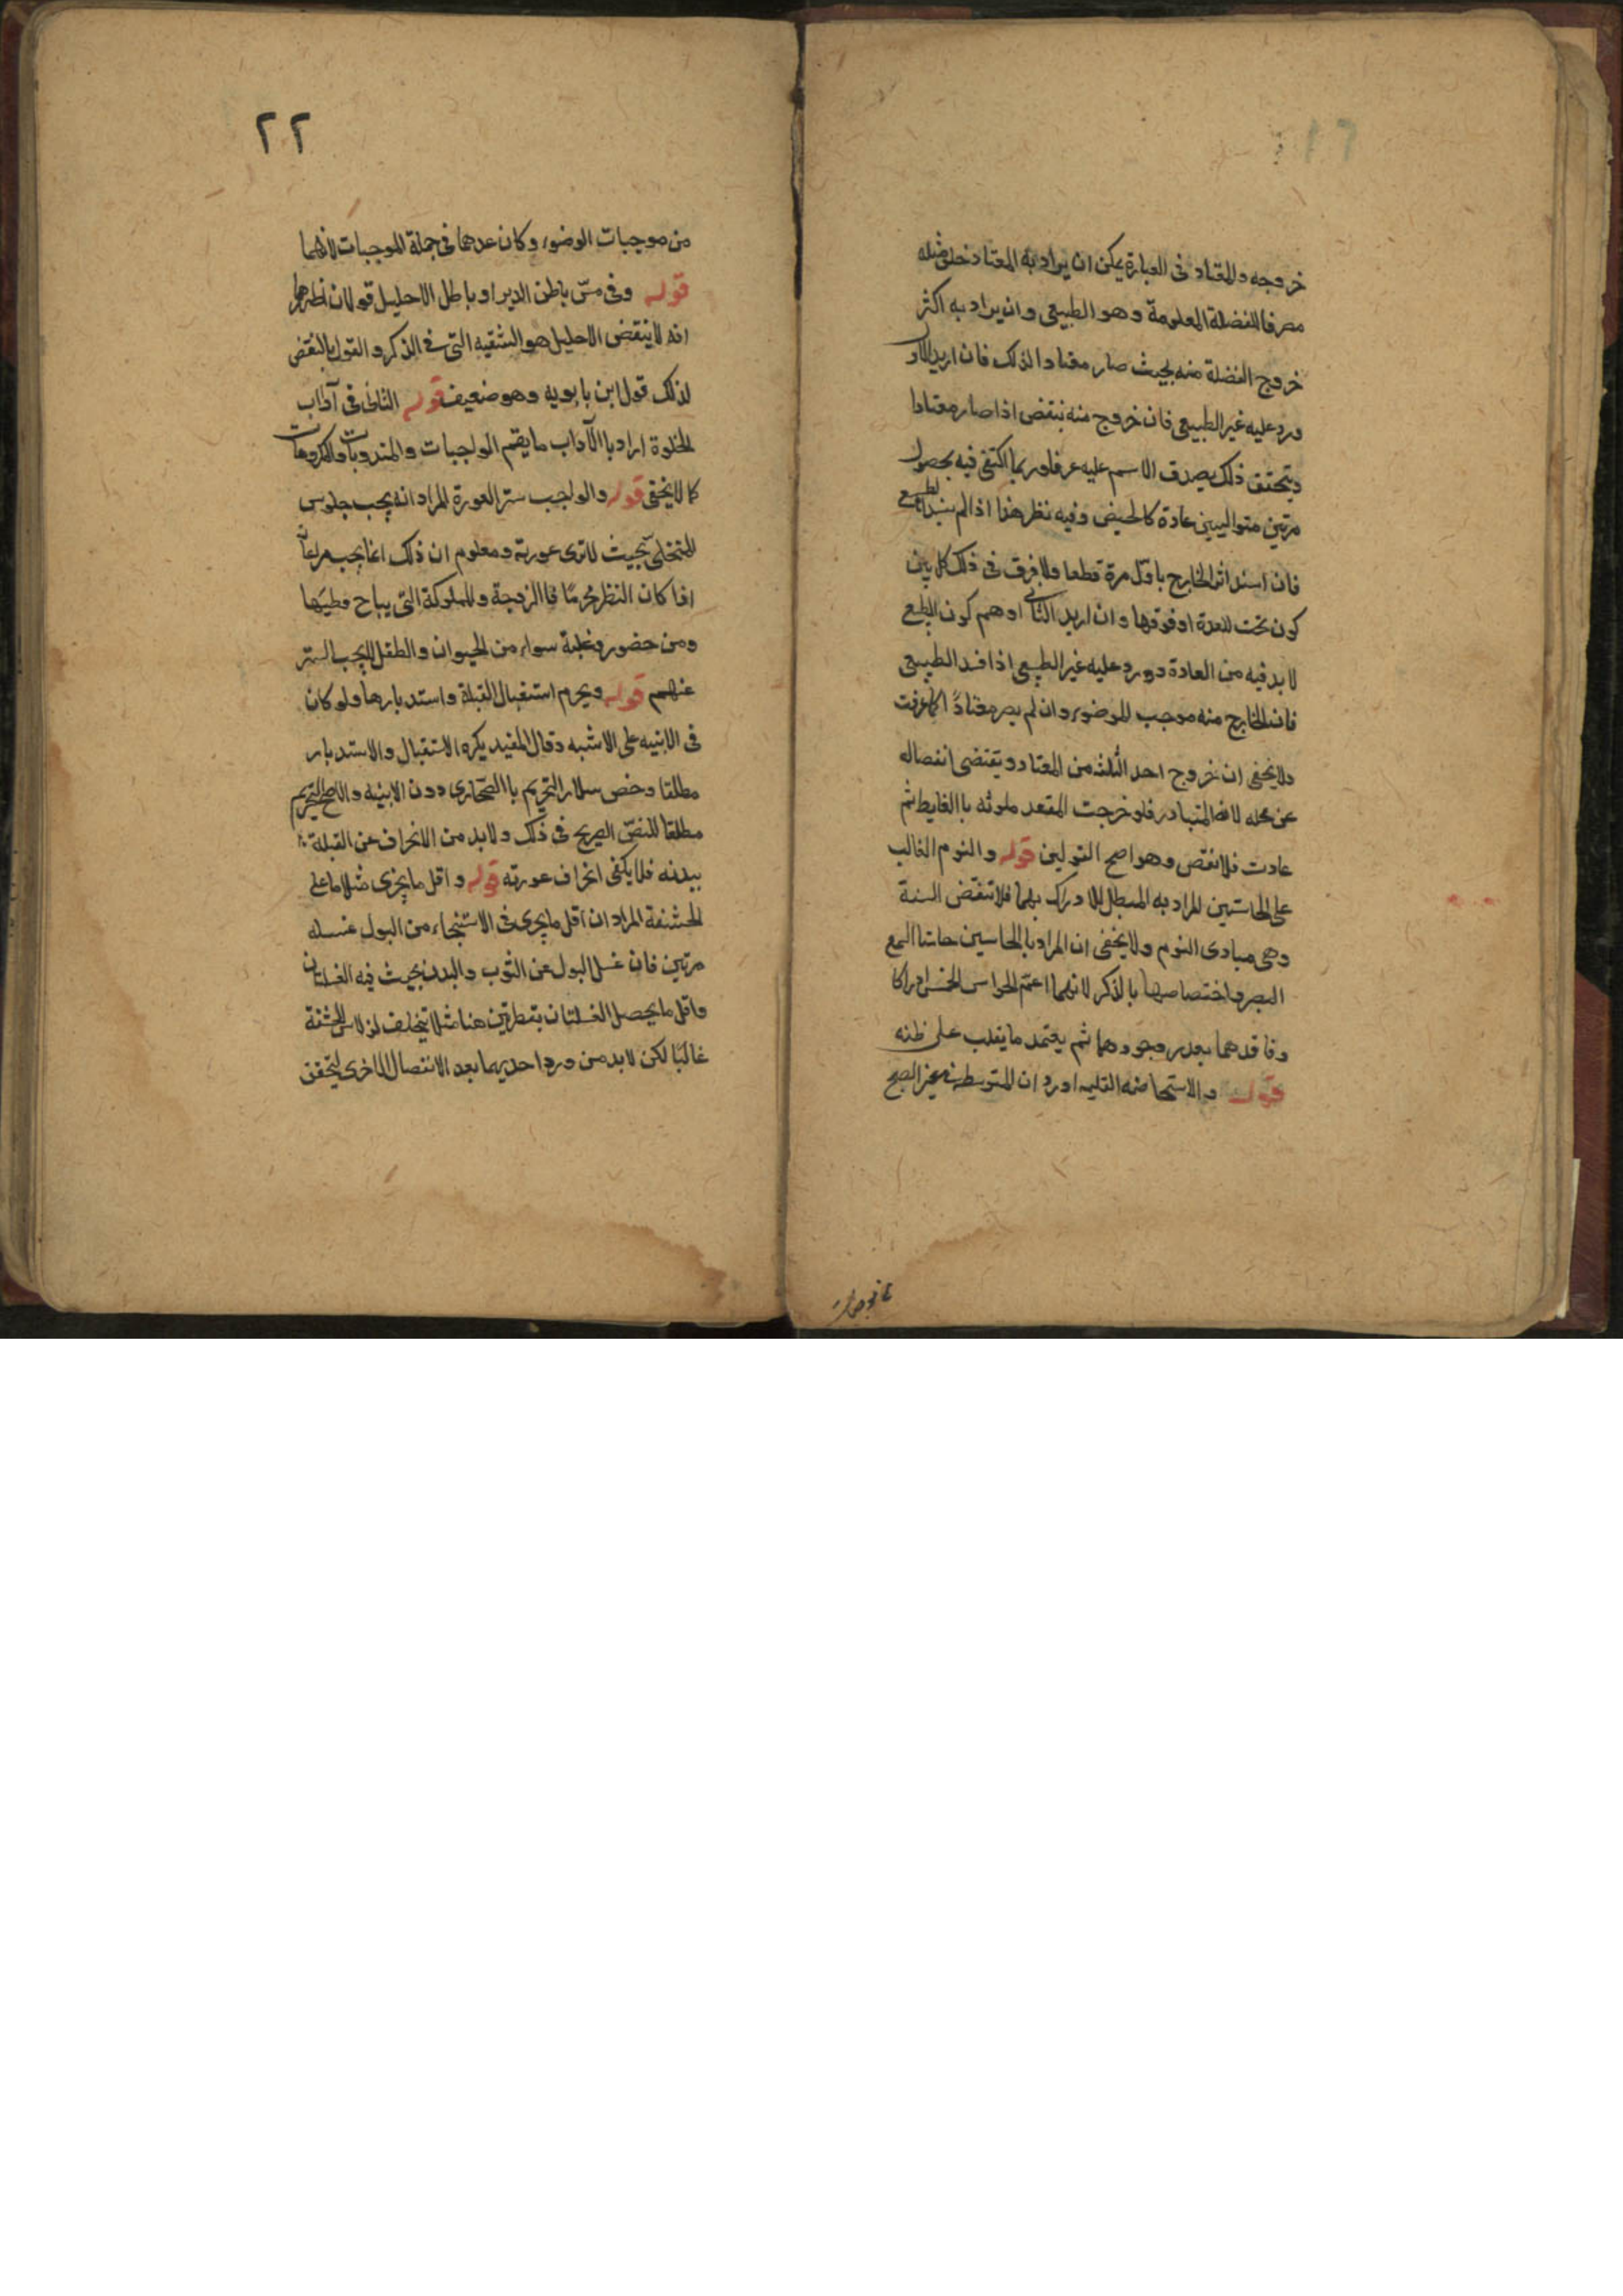 خروجه والمعتاد فى العبارة يمكن ان يراد به المعتاد خلق مثله
مصرفا للفضلة المعلومة وهو الطبيعى وان يراد به اكثر
خروج الفضلة منه بحيث صار معتادا لذلك فان اريد الاول
ورد عليه غير الطبيعى فان خروج منه ينقض اذا صار معتادا
ويتحقق ذلك بصدق الاسم عليه عرفا وربما اكتفى فيه بحصول
مرتين متواليين عادة كالحيض وفيه نظر هذا اذا لم ينسد الطبيعى
فان انسد اثر الخارج باول مرة قطعا ولا فرق فى ذلك كله بين
كون تحت المعدة او فوقها وان اريد الثانى اوهم كون الطبيعى
لا بد فيه من العادة دورد عليه غير الطبيعى اذا فسد الطبيعى
فان الخارج منه موجب للوضوء وان لم يصر معتادا كما عرفت
ولا يخفى ان خروج احد الثلثة من المعتاد ويقتضى انفصاله
عن محله لانه المتبادر فلو خرجت المقعد ملوثه با الغايط ثم
عادت فلا نقض وهو اصح القولين قوله والنوم الغالب
على الحاستين المراد به المبطل للادراك بهما فلا تنقض السنة
وهى مبادى النوم ولا يخفى ان المراد با الحاسين حاستا السمع
البصر واختصاصها با لذكر لانهما اعم الحواس الخمس ادراكا
وفاقدهما يعد وجودهما ثم يعتمد ما يغلب على ظنه
قوله والاستحاضه القليه اورد ان المتوسطه فى غير الصبح
٢٢
من موجبات الوضوء وكان عدهما فى جملة الموجبات لانهما
قوله وفى مس باطن الدبر او باطل الاحليل قولان اظهرهما
انه لا ينقض الاحليل هو الشقبه التى فى الذكر والقول بالنقض
لذلك قول ابن بابويه وهو ضعيف قوله الثانى فى آداب
الخلوة اراد با الآداب ما يعم الواجبات والمندوبات والمكروهات
كما لا يخفى قوله والواجب ستر العورة المراد انه يجب جلوس
للتخلى بحيث لا ترى عورته ومعلوم ان ذلك انما يجب مراعاته
اذا كان النظر محرمًا فا الزوجة والمملوكة التى يباح وطيها
ومن حضور وغلبة سواء من الحيوان والطفل لا يجب الستر
عنهم قوله ويحرم استقبال القبلة واستدبارها ولو كان
فى الابنيه على الاشبه وقال المفيد يكره الاستقبال والاستدبار
مطلقا وخص سلار التحريم با الصحارى دون الابنيه والاصح التحريم
مطلقا للنص الصريح فى ذلك ولا بد من الانحراف عن القبلة
ببدنه فلا يكفى انحراف عورته قوله واقل ما يجزى مثلا ما على
الحشفة المراد ان اقل ما يجزى فى الاستنجاء من البول غسله
مرتين فان غسل البول عن الثوب والبدن بحيث فيه الغسلتان
واقل ما يحصل الغسلتان بقطرتين هنا مثلا تخلف لراس الحشفة
غالبًا لكن لا بد من ورود احديهما بعد الانفصال الاخرى ليتحقق